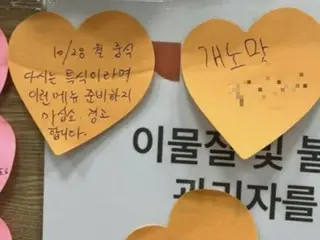 10/28 월 중식
다시는 특식이라며
이런 메뉴 준비하지
마십쇼 경고
합니다.
개노맛
이물질 및 불
관리자를